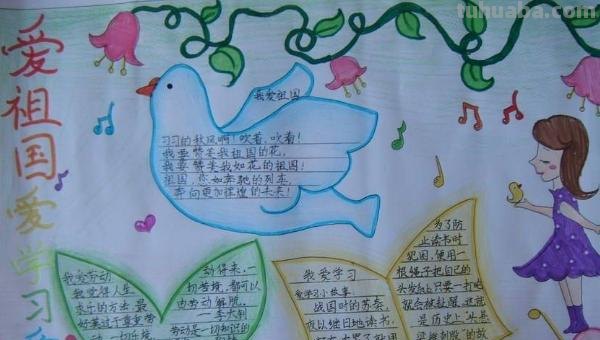 tuhuaba.com
爱祖国爱学习
我爱祖国
习习的秋风啊！吹着、吹着！
我要赞美我祖国的花，
我要赞美我如花的祖国！
祖国，恋如奔驰的列车
奔向更加辉煌的未来！
我爱劳动
我觉得人生
求乐的方法，最
好莫过于尊重劳
动。一切乐境
动得来，一
切苦境，都可以
由劳动解脱。
—李大钊
劳动是一切知识的
我爱学习
学习小故事
战国时的苏秦，
夜以继日地读书，
为了防
止读书时
犯困，便用一
根绳子把自己的
头发
就会被扯醒，这就
是历史上"头悬
梁锥刺股"的故